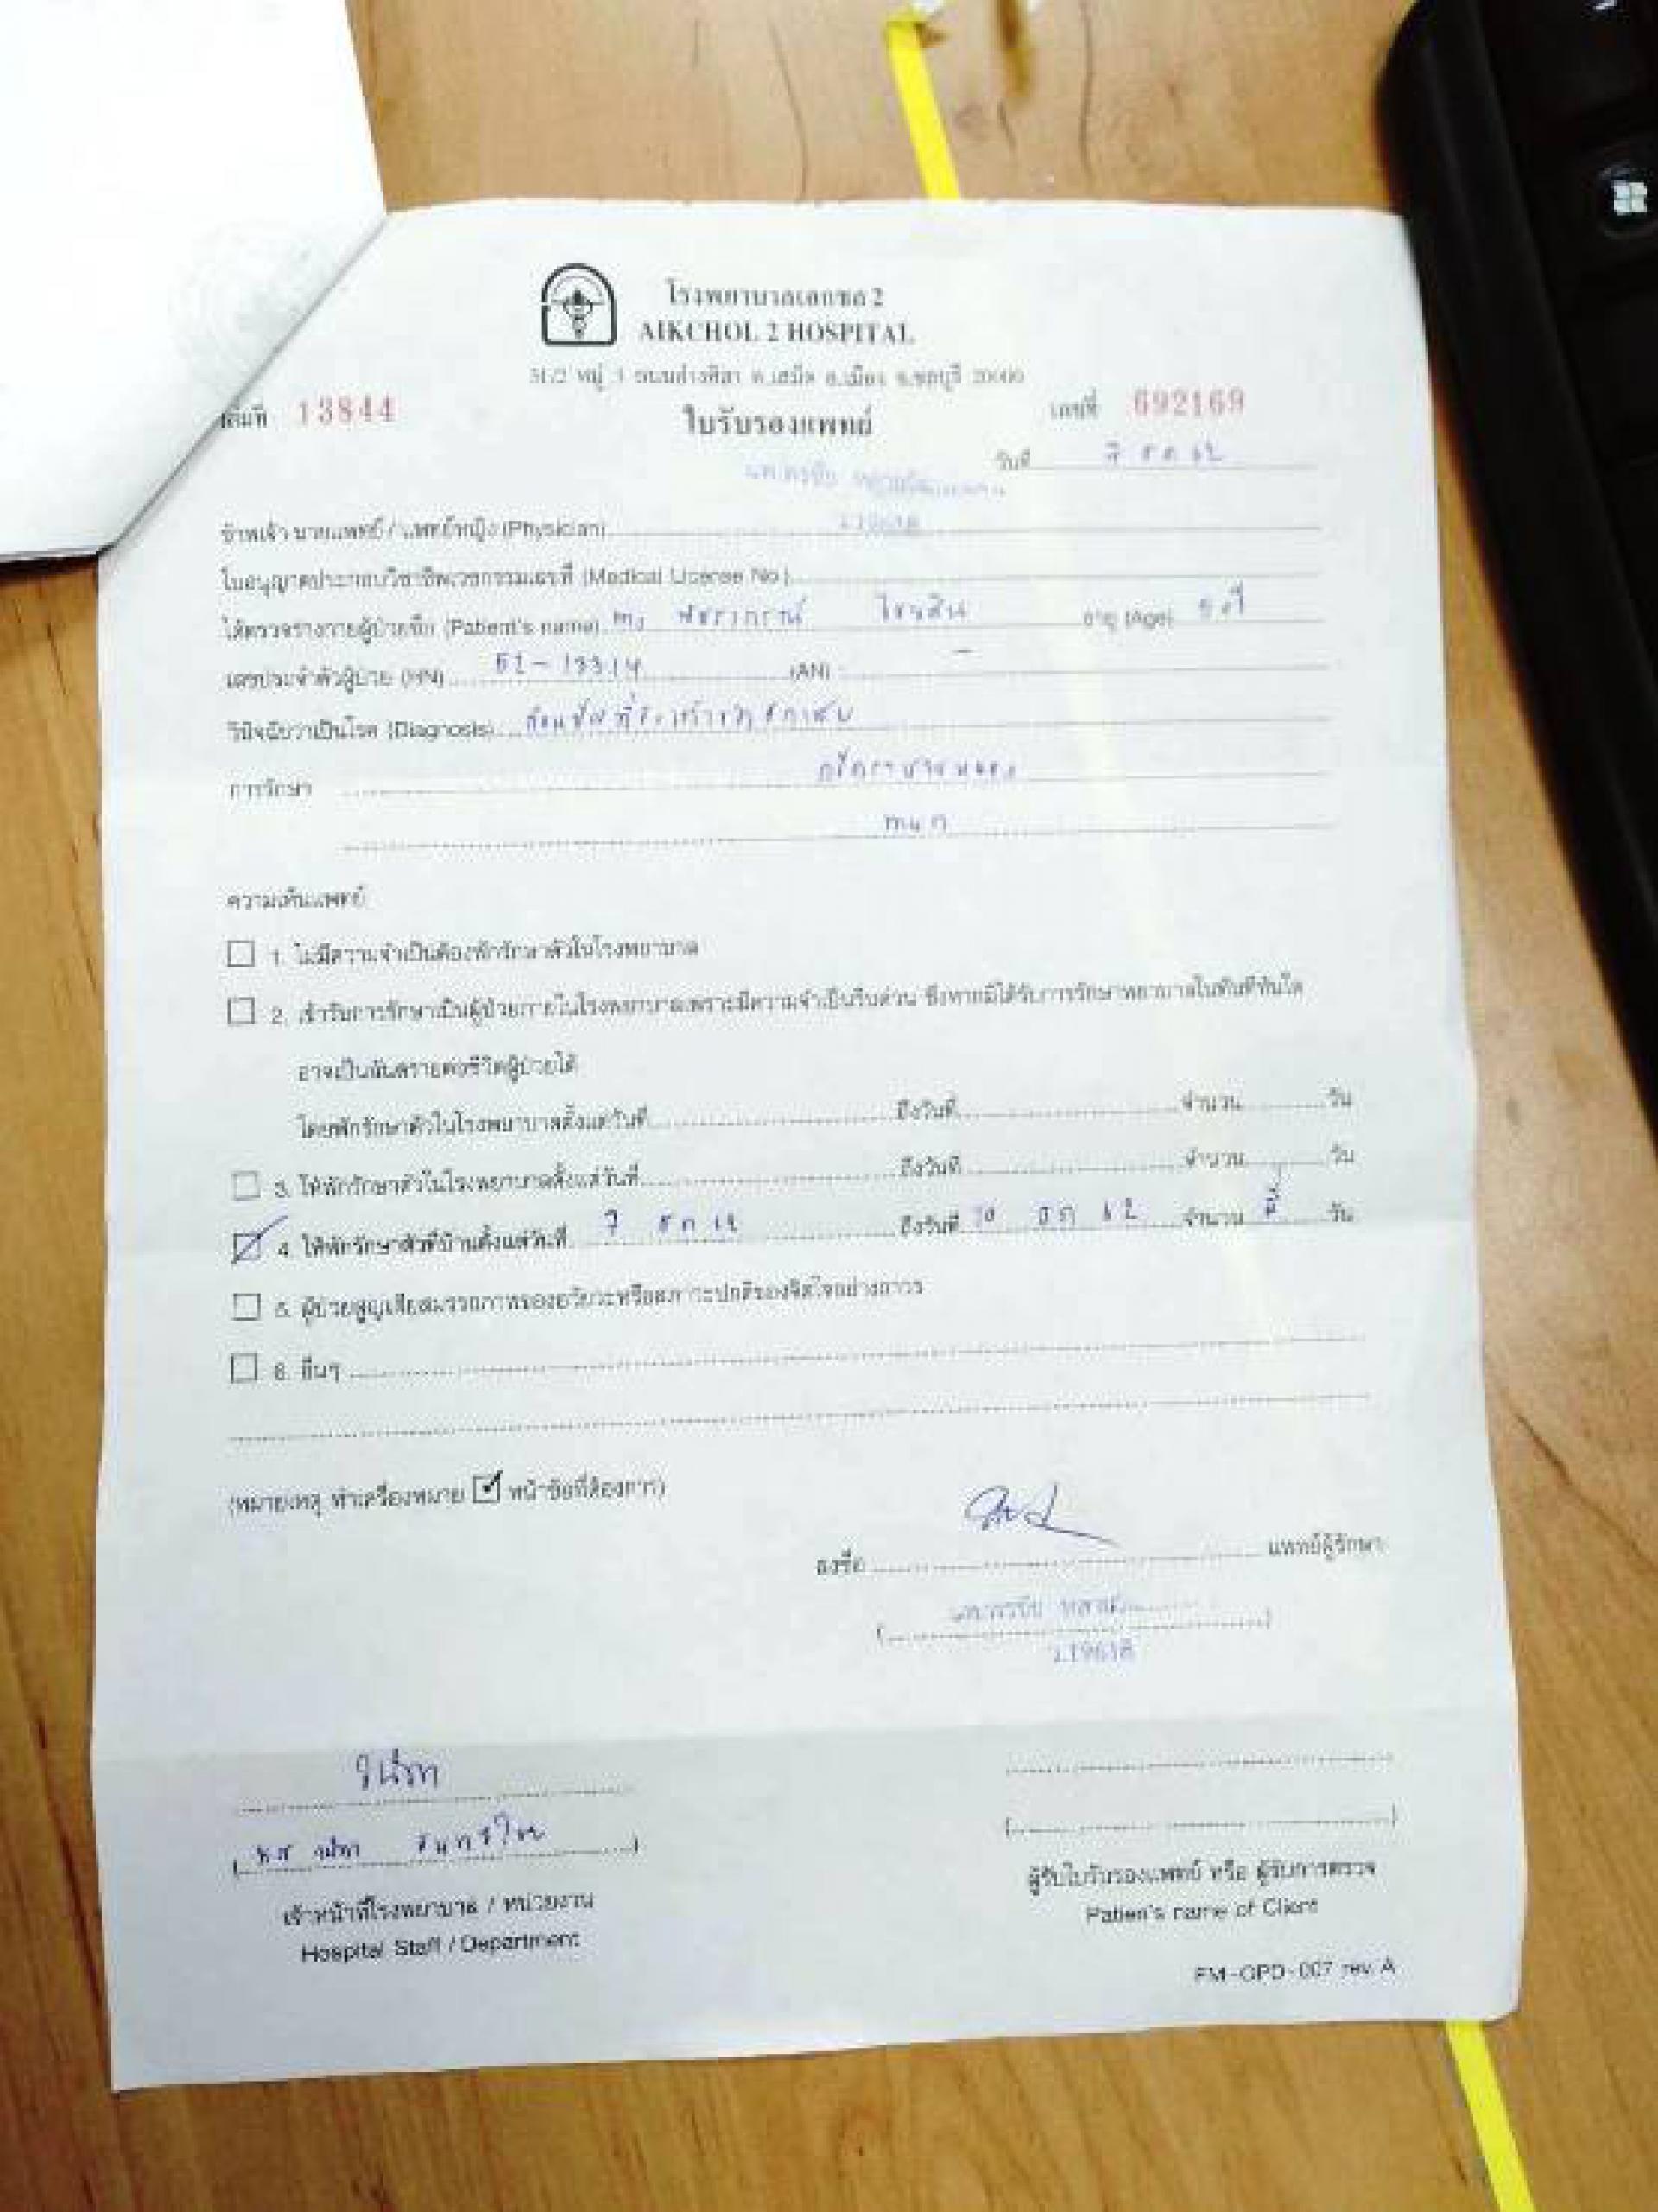 โรงพยาบาลเอกชล 2
AIKCHOL 2 HOSPITAL
31/2 หมู่ 3 ถนนอ่างศิลา ต.เสม็ด อ.เมือง จ.ชลบุรี 20000
เล่มที่ 13844
ใบรับรองแพทย์
เลขที่ 692169
วันที่ 7 ธค 62
ข้าพเจ้า นายแพทย์ / แพทย์หญิง (Physician)
ใบอนุญาตประกอบวิชาชีพเวชกรรมเลขที่ (Medical License No.)
ได้ตรวจร่างกายผู้ป่วยชื่อ (Patient's name) อายุ (Age)
เลขประจำตัวผู้ป่วย (HN) (AN) -
วินิจฉัยว่าเป็นโรค (Diagnosis)
การรักษา
ความเห็นแพทย์
1. ไม่มีความจำเป็นต้องพักรักษาตัวในโรงพยาบาล
2. เข้ารับการรักษาเป็นผู้ป่วยภายในโรงพยาบาลเพราะมีความจำเป็นรีบด่วน ซึ่งหากมิได้รับการรักษาพยาบาลในทันทีทันใด
อาจเป็นอันตรายต่อชีวิตผู้ป่วยได้
โดยพักรักษาตัวในโรงพยาบาลตั้งแต่วันที่ ถึงวันที่ จำนวน วัน
3. ให้พักรักษาตัวในโรงพยาบาลตั้งแต่วันที่ ถึงวันที่ จำนวน วัน
4. ให้พักรักษาตัวที่บ้านตั้งแต่วันที่ 7 ธค 62 ถึงวันที่ 10 ธค 62 จำนวน สี่ วัน
5. ผู้ป่วยสูญเสียสมรรถภาพของอวัยวะหรือสภาวะปกติของจิตใจอย่างถาวร
6. อื่นๆ
(หมายเหตุ ทำเครื่องหมาย ☑ หน้าข้อที่ต้องการ)
ลงชื่อ แพทย์ผู้รักษา
ว.19618
เจ้าหน้าที่โรงพยาบาล / หน่วยงาน
Hospital Staff / Department
ผู้รับใบรับรองแพทย์ หรือ ผู้รับการตรวจ
Patien's name of Client
FM-OPD-007 rev. A